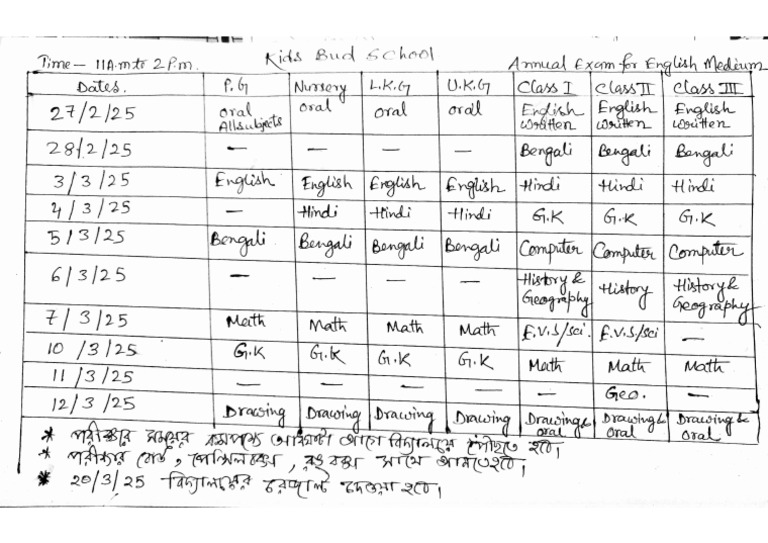 Kids Bud School
Time - 11A.m to 2P.m. Annual Exam for English Medium
Dates. P.G Nursery L.K.G U.K.G Class I Class II Class III
27/2/25 Oral Allsubjects Oral Oral Oral English written English written English written
28/2/25 — — — — Bengali Bengali Bengali
3/3/25 English English English English Hindi Hindi Hindi
4/3/25 — Hindi Hindi Hindi G.K G.K G.K
5/3/25 Bengali Bengali Bengali Bengali Computer Computer Computer
6/3/25 — — — — History & Geography History History & Geography
7/3/25 Math Math Math Math E.V.S/sci. E.V.S/sci —
10/3/25 G.K G.K G.K G.K Math Math Math
11/3/25 — — — — — Geo. —
12/3/25 Drawing Drawing Drawing Drawing Drawing & oral Drawing & oral Drawing & oral
* পরীক্ষার সময়ের কমপক্ষে আধঘন্টা আগে বিদ্যালয়ে পৌঁছতে হবে।
* পরীক্ষার বোর্ড, পেন্সিল বক্স, রঙ বক্স সাথে আনতে হবে।
* 20/3/25 বিদ্যালয়ের রেজাল্ট দেওয়া হবে।